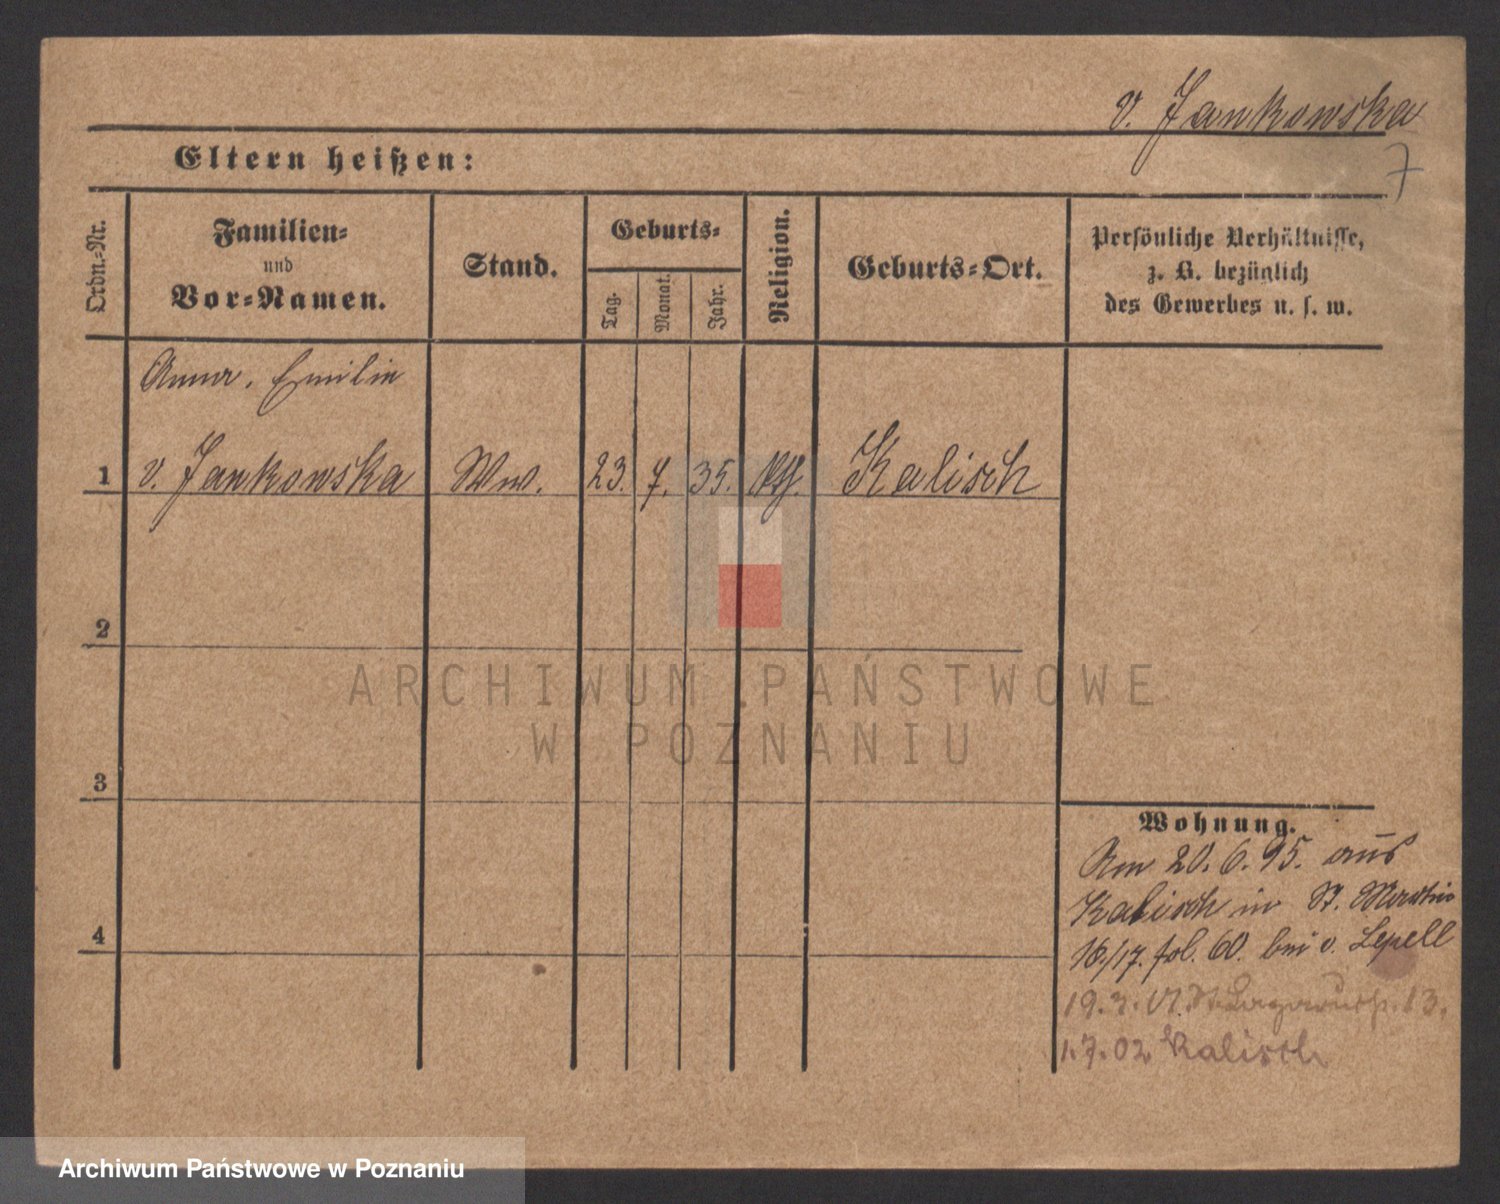 v. Jankowska
7
Eltern heißen:
Ordn.-Nr.
Familien-
und
Vor-Namen.
Stand.
Geburts-
Tag.
Monat.
Jahr.
Religion.
Geburts-Ort.
Persönliche Verhältnisse,
z. B. bezüglich
des Gewerbes u. s. w.
Anna, Emilie
1 v. Jankowska Ww. 23. 7. 35. Kalisch
2
3
4
Wohnung.
Am 20. 6. 95. aus
Kalisch in St. Martin
16/17. fol. 60. bei v. Lepell
19. 13.
1.7.02 Kalisch
ARCHIWUM PAŃSTWOWE
W POZNANIU
Archiwum Państwowe w Poznaniu